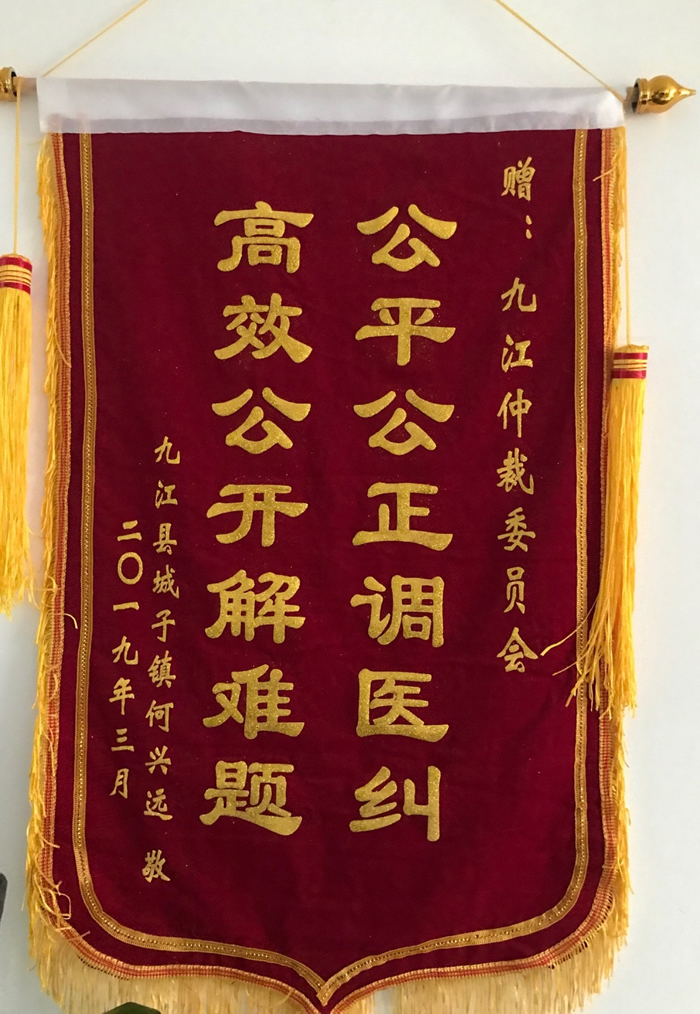 赠：九江仲裁委员会
公平公正调医纠
高效公开解难题
九江县城子镇何兴远 敬
二〇一九年三月